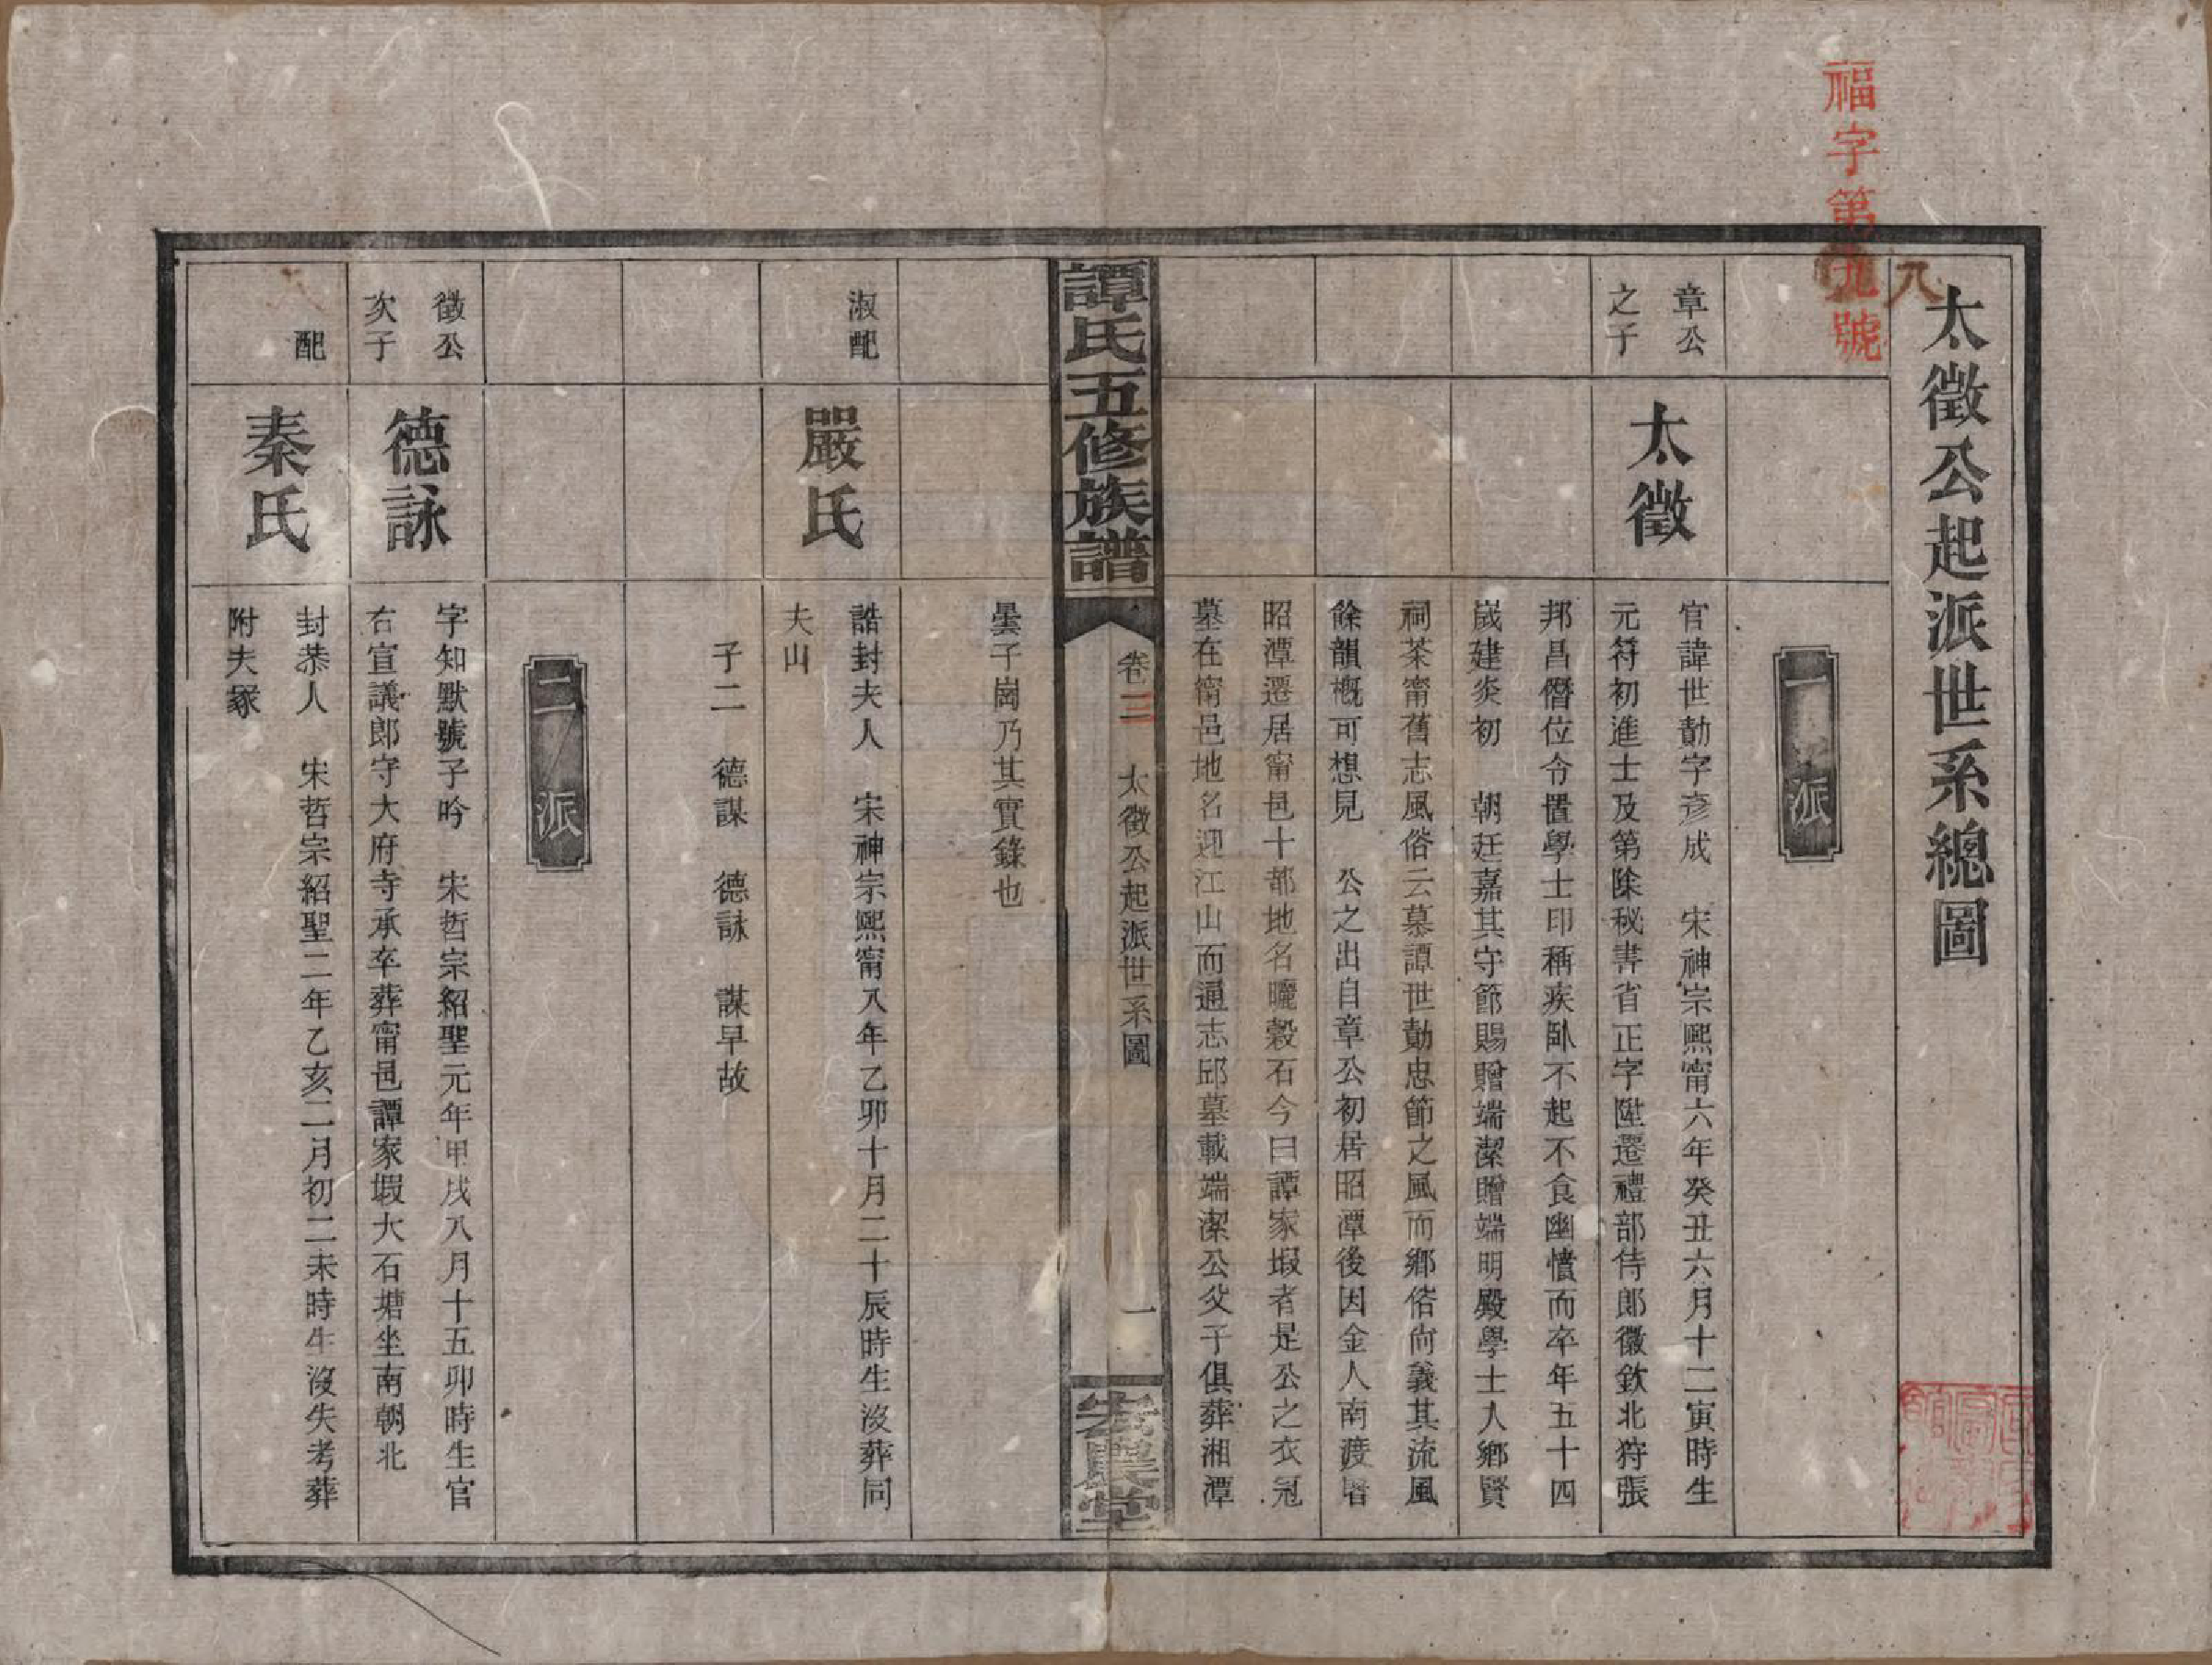 福字第九號
八
太徵公起派世系總圖
一派
章公之子
太徵
官諱世勣字彥成　宋神宗熙甯六年癸丑六月十二寅時生
元符初進士及第除秘書省正字陞遷禮部侍郎徽欽北狩張
邦昌僭位令置學士印稱疾臥不起不食幽憤而卒年五十四
歲建炎初　朝廷嘉其守節賜贈端潔贈端明殿學士入鄉賢
祠茶甯舊志風俗云慕譚世勣忠節之風而鄉俗尙義其流風
餘韻概可想見　公之出自章公初居昭潭後因金人南渡
昭潭遷居甯邑十都地名曬穀石今曰譚家塅者是公之衣冠
墓在甯邑地名迎江山而通志邱墓載端潔公父子俱葬湘潭
譚氏五修族譜
卷三
太徵公起派世系圖
一
宏農堂
曇子崗乃其實錄也
淑配
嚴氏
誥封夫人　宋神宗熙甯八年乙卯十月二十辰時生沒葬同
夫山
子二　德謀　德詠　謀早故
二派
徵公次子
德詠
字知默號子吟　宋哲宗紹聖元年甲戌八月十五卯時生官
右宣議郎守大府寺承卒葬甯邑譚家塅大石塘坐南朝北
配
秦氏
封恭人　宋哲宗紹聖二年乙亥二月初二未時生沒失考葬
附夫塚